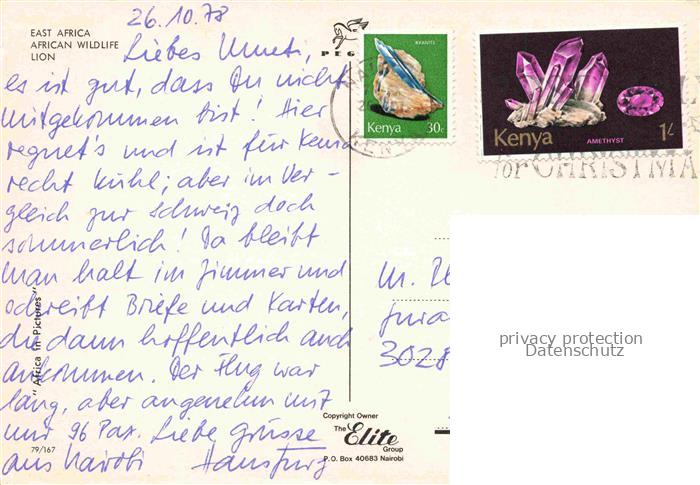 26.10.78
EAST AFRICA
AFRICAN WILDLIFE
LION
Liebes
es ist gut, dass Du nicht
mitgekommen bist! Hier
regnet's und ist für Kenia
recht kühl; aber im Ver-
gleich zur Schweiz doch
sommerlich! Da bleibt
man halt im Zimmer und
schreibt Briefe und Karten,
die dann hoffentlich auch
ankommen. Der Flug war
lang, aber angenehm mit
nur 96 Pax. Liebe Grüsse
aus Nairobi
"Africa in Pictures"
79/167
PEG
KYANITE
Kenya 30c
Kenya AMETHYST 1/-
for CHRISTMA
3028
privacy protection
Datenschutz
Copyright Owner
The Elite
Group
P.O. Box 40683 Nairobi